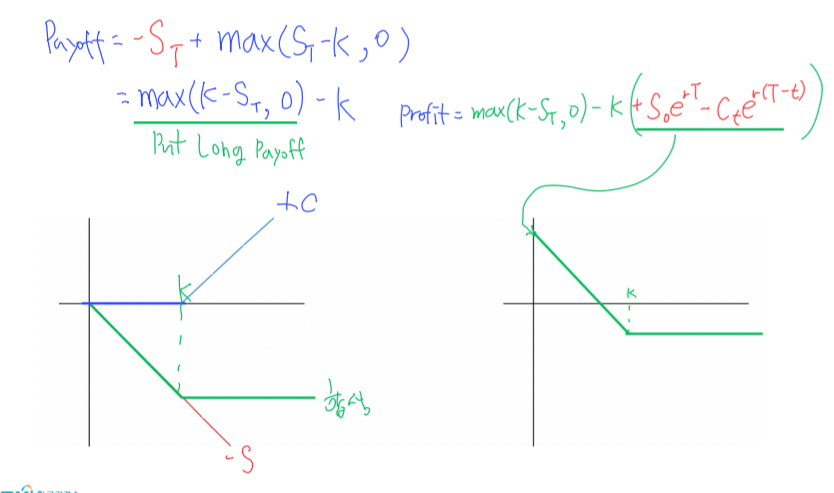 Payoff = -S_T + max(S_T-K, 0)
= max(K-S_T, 0) - K
Put Long Payoff
Profit = max(K-S_T, 0) - K (+ S_0e^{rT} - C_te^{r(T-t)})
+C
K
K
-S